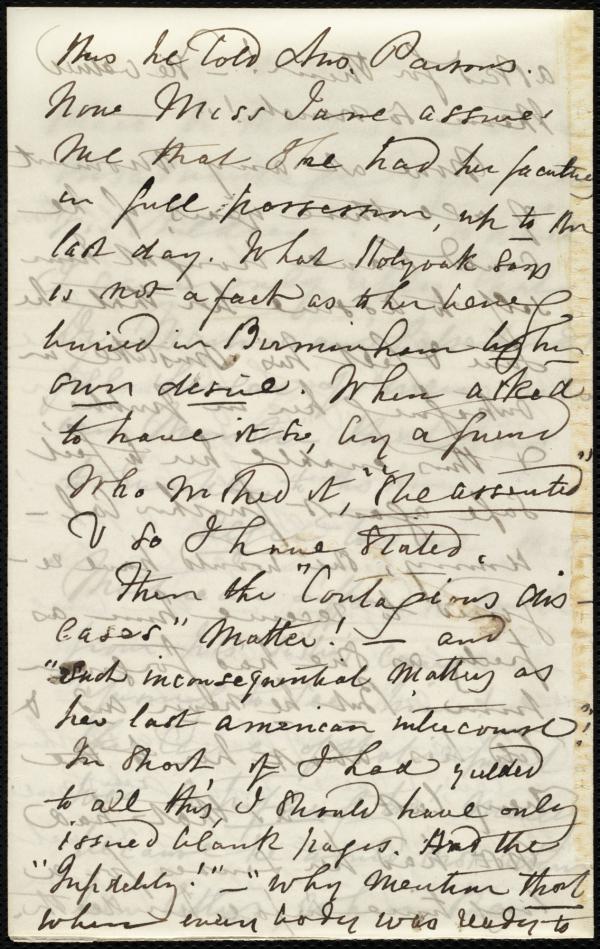 this he told Mrs. Parsons.
Now Miss Jane assures
me that she had her faculties
in full possession, up to the
last day. What Holyoak says
is not a fact as to her being
buried in Birmingham by her
own desire. When asked
to have it so, by a friend
who wished it, "She assented"
& so I have stated.
Then the "Contagious dis-
eases" matter! — and
"such inconsequential matters as
her last american intercourse"!
In short, if I had yielded
to all this, I should have only
issued blank pages. And the
"Infidelity!" — "why mention that
when every body was ready to